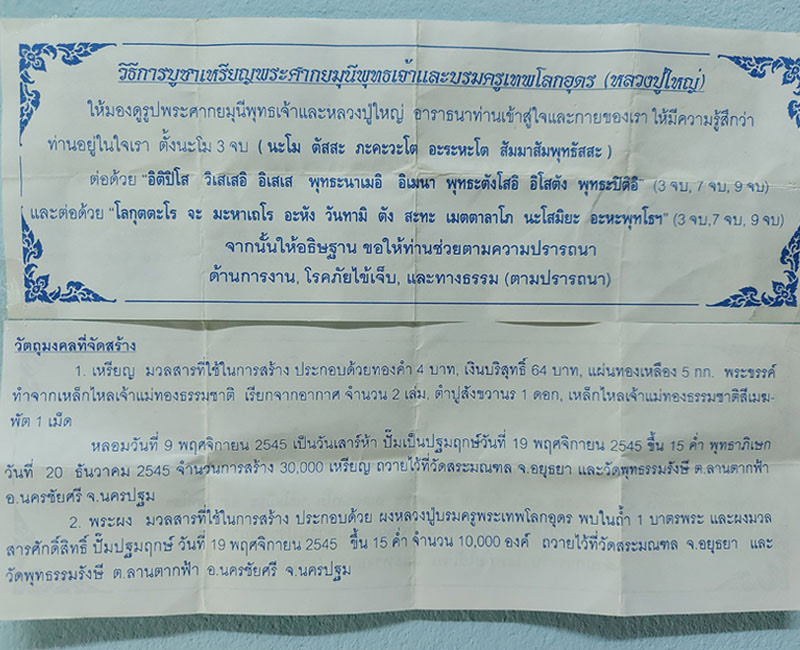 วิธีการบูชาเหรียญพระศากยมุนีพุทธเจ้าและบรมครูเทพโลกอุดร (หลวงปู่ใหญ่)
ให้มองดูรูปพระศากยมุนีพุทธเจ้าและหลวงปู่ใหญ่ อาราธนาท่านเข้าสู่ใจและกายของเรา ให้มีความรู้สึกว่า
ท่านอยู่ในใจเรา ตั้งนะโม 3 จบ (นะโม ตัสสะ ภะคะวะโต อะระหะโต สัมมาสัมพุทธัสสะ)
ต่อด้วย "อิติปิโส วิเสเสอิ อิเสเส พุทธะนาเมอิ อิเมนา พุทธะตังโสอิ อิโสตัง พุทธะปิติอิ" (3 จบ, 7 จบ, 9 จบ)
และต่อด้วย "โลกุตตะโร จะ มะหาเถโร อะหัง วันทามิ ตัง สะทะ เมตตาลาโภ นะโสมิยะ อะหะพุทโธฯ" (3 จบ,7 จบ, 9 จบ)
จากนั้นให้อธิษฐาน ขอให้ท่านช่วยตามความปรารถนา
ด้านการงาน, โรคภัยไข้เจ็บ, และทางธรรม (ตามปรารถนา)
วัตถุมงคลที่จัดสร้าง
1. เหรียญ มวลสารที่ใช้ในการสร้าง ประกอบด้วยทองคำ 4 บาท, เงินบริสุทธิ์ 64 บาท, แผ่นทองเหลือง 5 กก. พระขรรค์
ทำจากเหล็กไหลเจ้าแม่ทองธรรมชาติ เรียกจากอากาศ จำนวน 2 เล่ม, ตำปูสังขวานร 1 ดอก, เหล็กไหลเจ้าแม่ทองธรรมชาติสีเมฆ-
พัต 1 เม็ด
หลอมวันที่ 9 พฤศจิกายน 2545 เป็นวันเสาร์ห้า ปั๊มเป็นปฐมฤกษ์วันที่ 19 พฤศจิกายน 2545 ขึ้น 15 ค่ำ พุทธาภิเษก
วันที่ 20 ธันวาคม 2545 จำนวนการสร้าง 30,000 เหรียญ ถวายไว้ที่วัดสระมณฑล จ.อยุธยา และวัดพุทธธรรมรังษี ต.ลานตากฟ้า
อ.นครชัยศรี จ.นครปฐม
2. พระผง มวลสารที่ใช้ในการสร้าง ประกอบด้วย ผงหลวงปู่บรมครูพระเทพโลกอุดร พบในถ้ำ 1 บาตรพระ และผงมวล
สารศักดิ์สิทธิ์ ปั๊มปฐมฤกษ์ วันที่ 19 พฤศจิกายน 2545 ขึ้น 15 ค่ำ จำนวน 10,000 องค์ ถวายไว้ที่วัดสระมณฑล จ.อยุธยา และ
วัดพุทธธรรมรังษี ต.ลานตากฟ้า อ.นครชัยศรี จ.นครปฐม